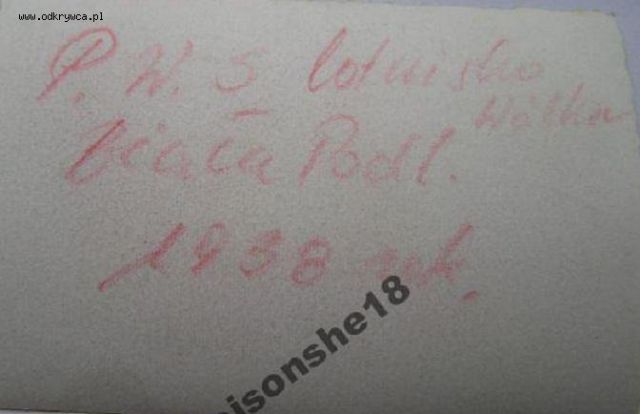 www.odkrywca.pl
P.W.S lotnisko
Wólka
biała Podl.
1938 rok.
isonshe18